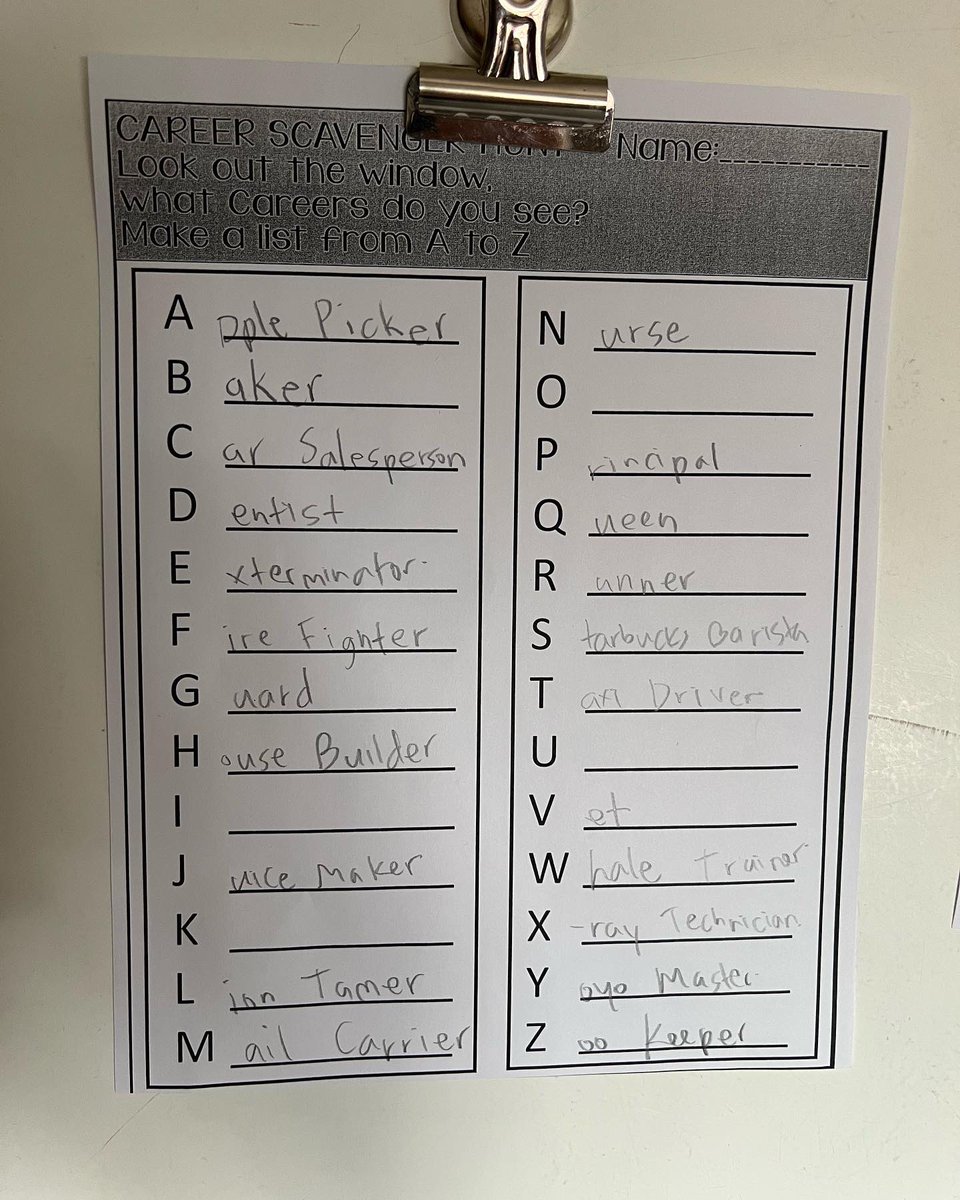 CAREER SCAVENGER HUNT Name:___________
Look out the window,
what Careers do you see?
Make a list from A to Z
A pple Picker
B aker
C ar Salesperson
D entist
E xterminator
F ire Fighter
G uard
H ouse Builder
I
J uice Maker
K
L ion Tamer
M ail Carrier
N urse
O
P rincipal
Q ueen
R unner
S tarbucks Barista
T axi Driver
U
V et
W hale Trainer
X -ray Technician
Y oyo Master
Z oo Keeper